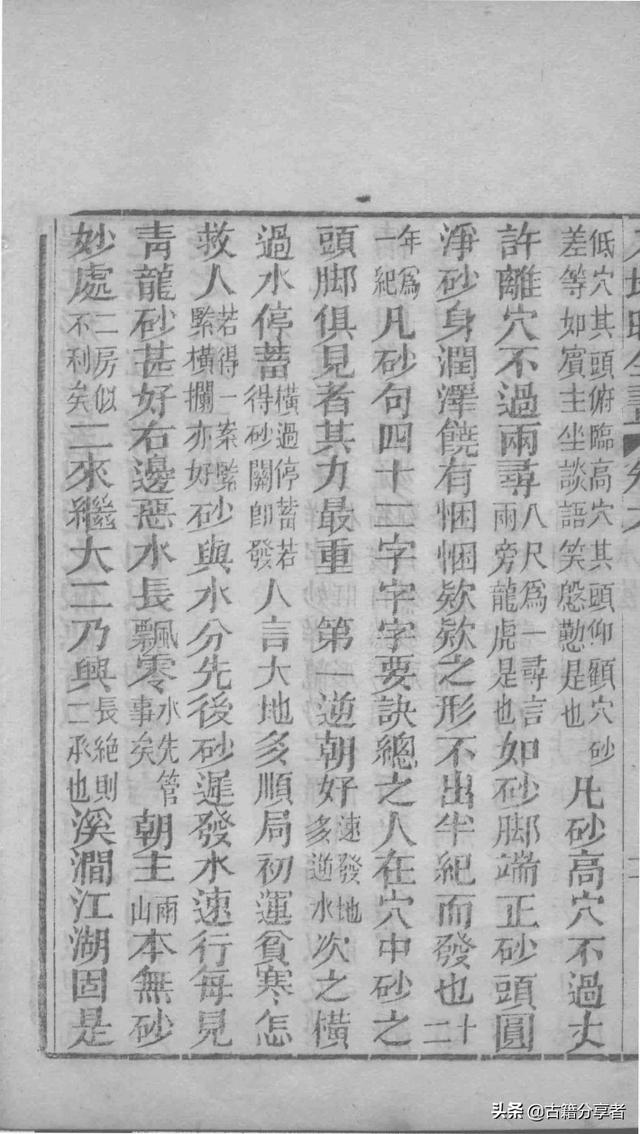 低穴其頭俯臨高穴其頭仰顧穴砂差等如賓主坐談語笑慇懃是也凡砂高穴不過丈
許離穴不過兩尋八尺爲一尋言兩旁龍虎是也如砂脚端正砂頭圓
淨砂身潤澤饒有悃悃欵欵之形不出半紀而發也十二
年爲一紀凡砂句四十二字字字要訣總之人在穴中砂之
頭脚俱見者其力最重 第一逆朝好速發地多逆水次之橫
過水停蓄橫過停蓄若得砂關卽發人言大地多順局初運貧寒怎
救人若得一案緊緊橫攔亦好砂與水分先後砂遲發水速行每見
青龍砂甚好右邊惡水長飄零水先管事矣 朝主兩山本無砂
妙處二房似不利矣二來繼大二乃興長絕則二承也溪澗江湖固是
头条 @古籍分享者